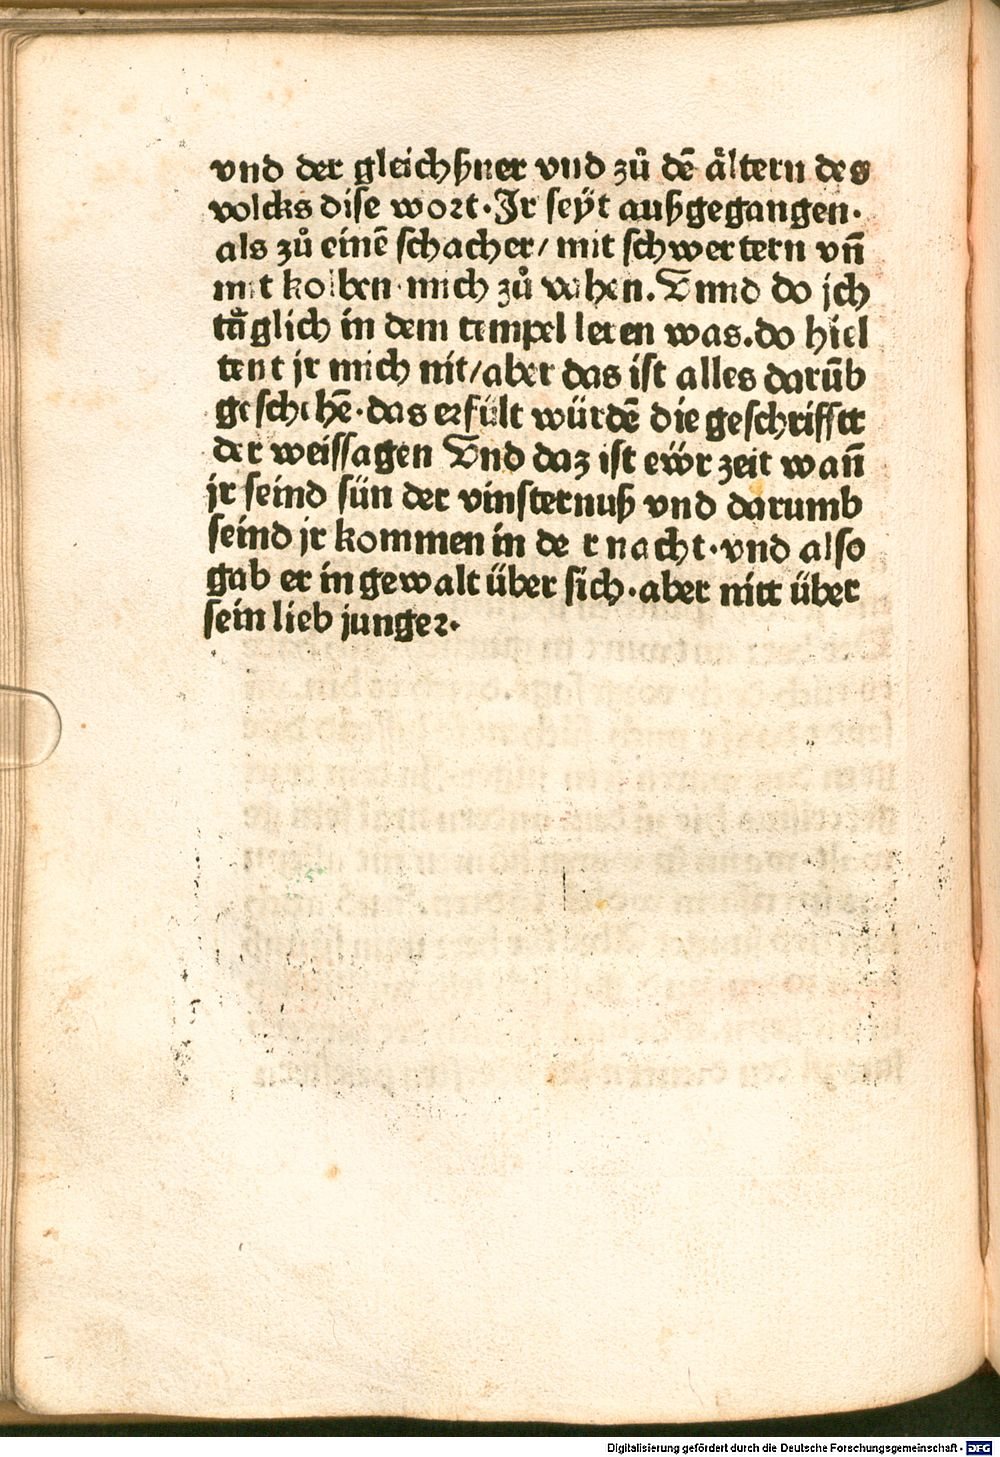 vnd der gleichßner vnd zů dē ältern des
volcks dise wort. Jr seÿt außgegangen.
als zů einē schacher/ mit schwertern vn̄
mit kolben mich zů vahen. Vnnd do jch
täglich in dem tempel leren was. do hiel
tent jr mich nit/ aber das ist alles darūb
geschehē. das erfült würdē die geschrifftt
der weissagen Vnd daz ist ewr̈ zeit wan̄
jr seind sün der vinsternuß vnd darumb
seind jr kommen in der nacht. vnd also
gab er in gewalt über sich. aber nitt über
sein lieb junger.
Digitalisierung gefördert durch die Deutsche Forschungsgemeinschaft - DFG